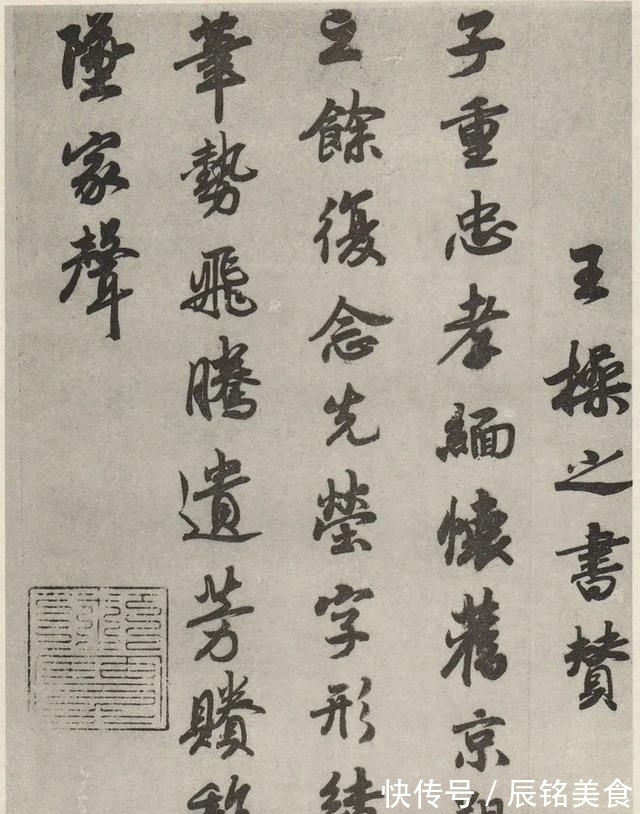 王操之書贊
子重忠孝緬懷舊京
之餘復念先塋字形結
筆勢飛騰遺芳賸
墜家聲
快传号 / 辰铭美食